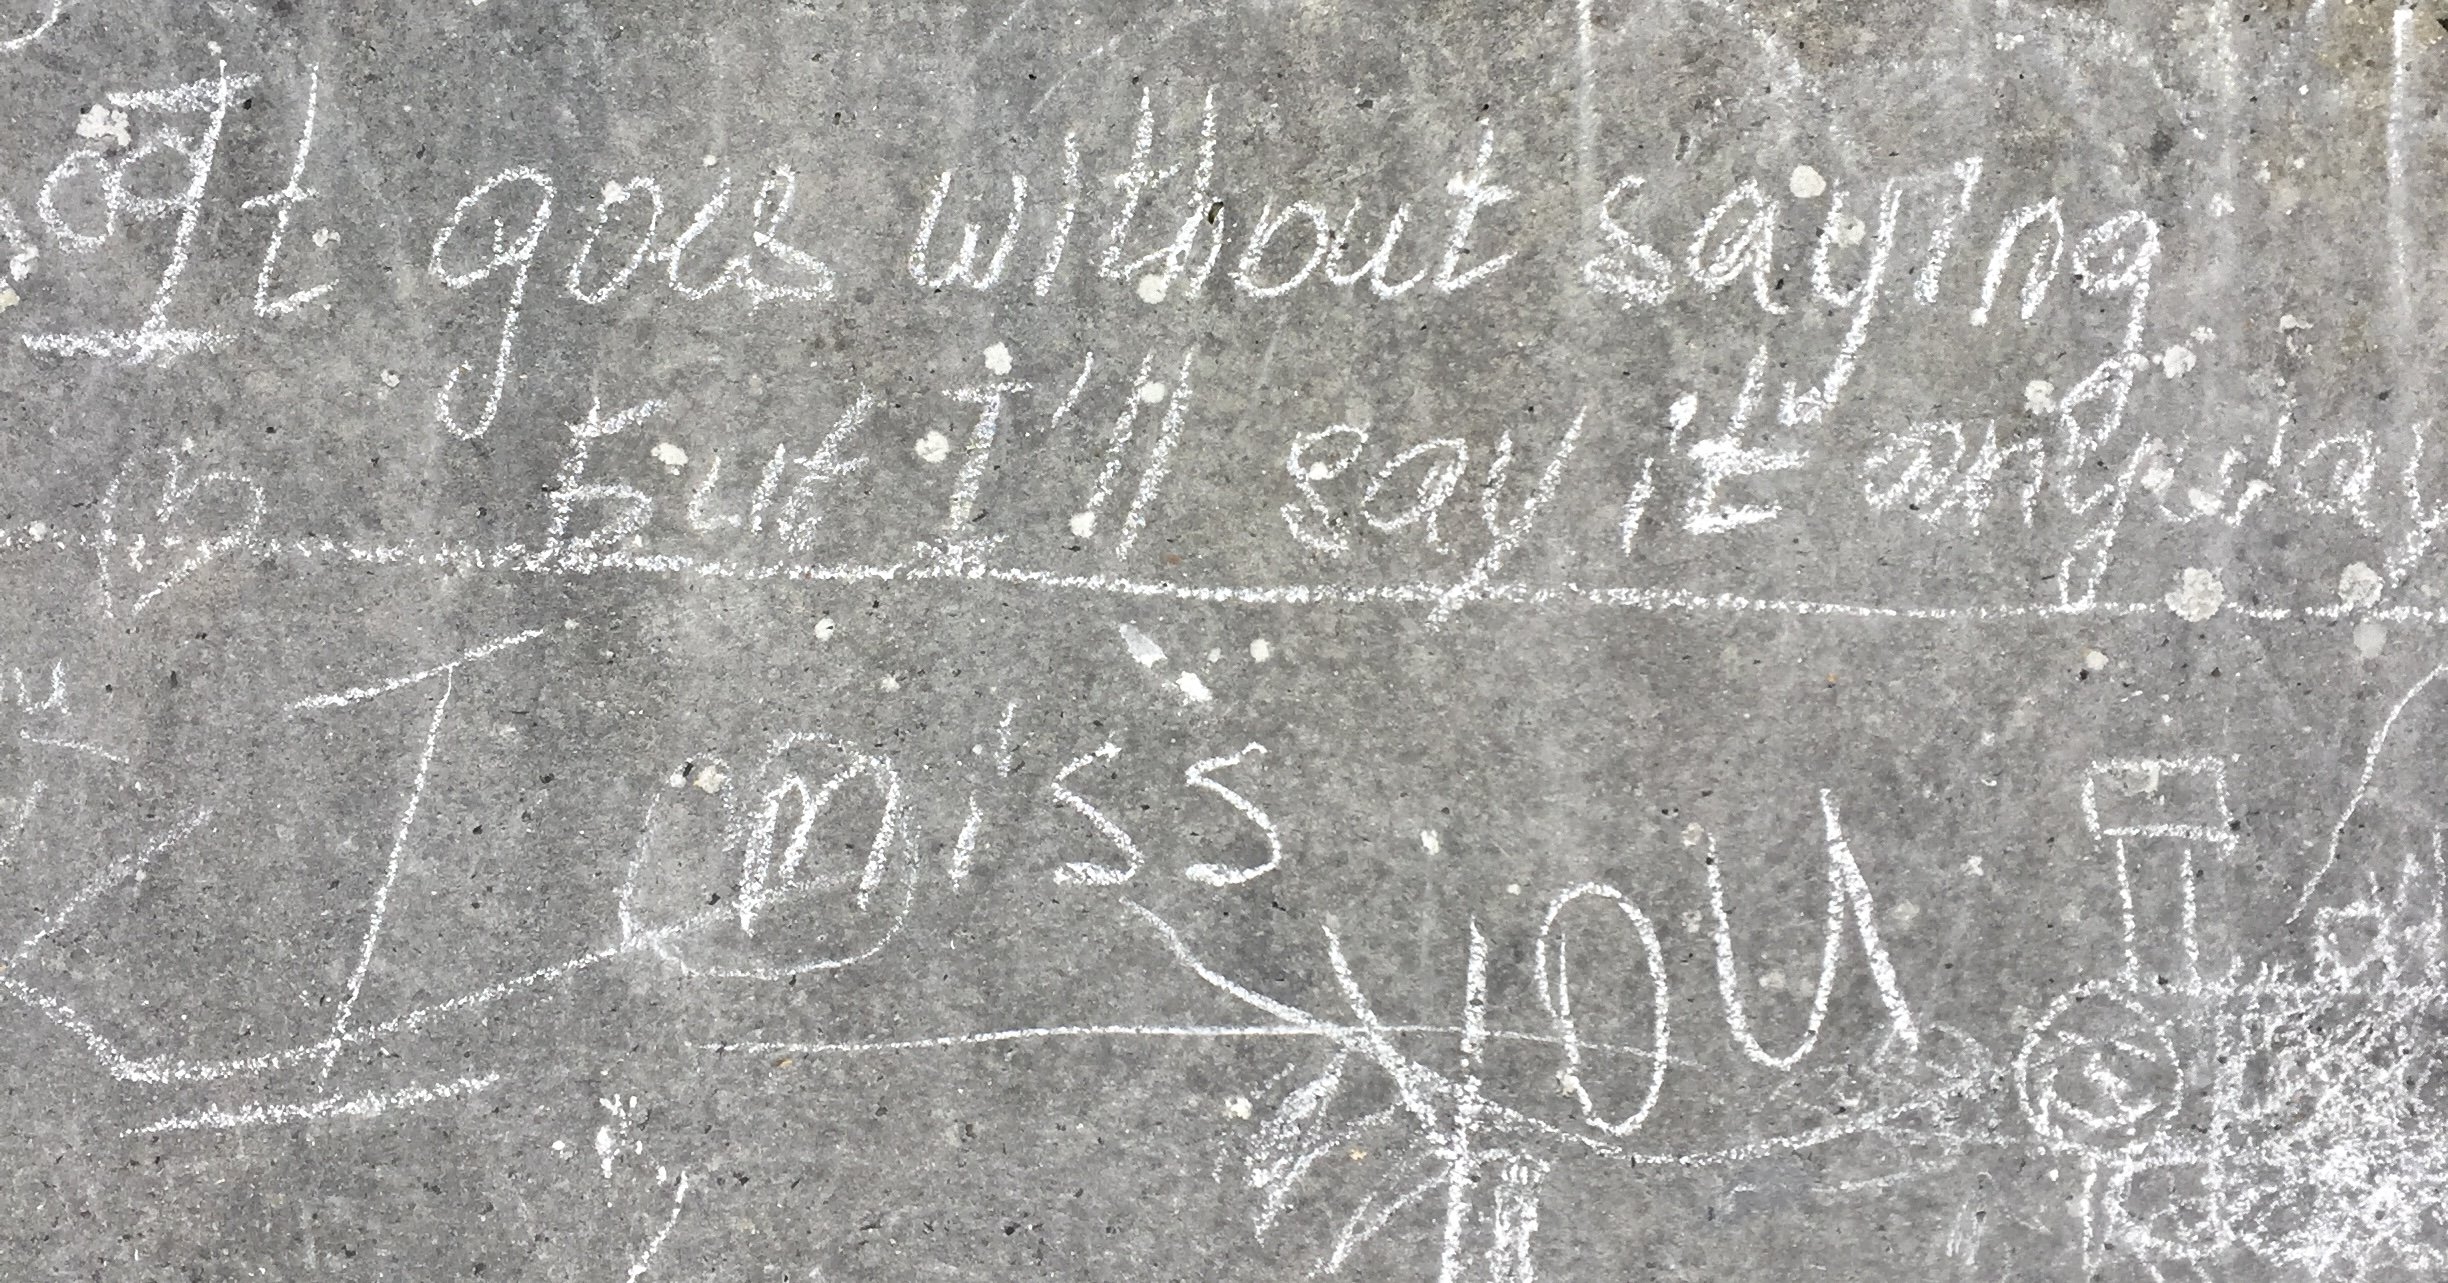 It goes without saying
But I'll say it anyway
I miss
YOU